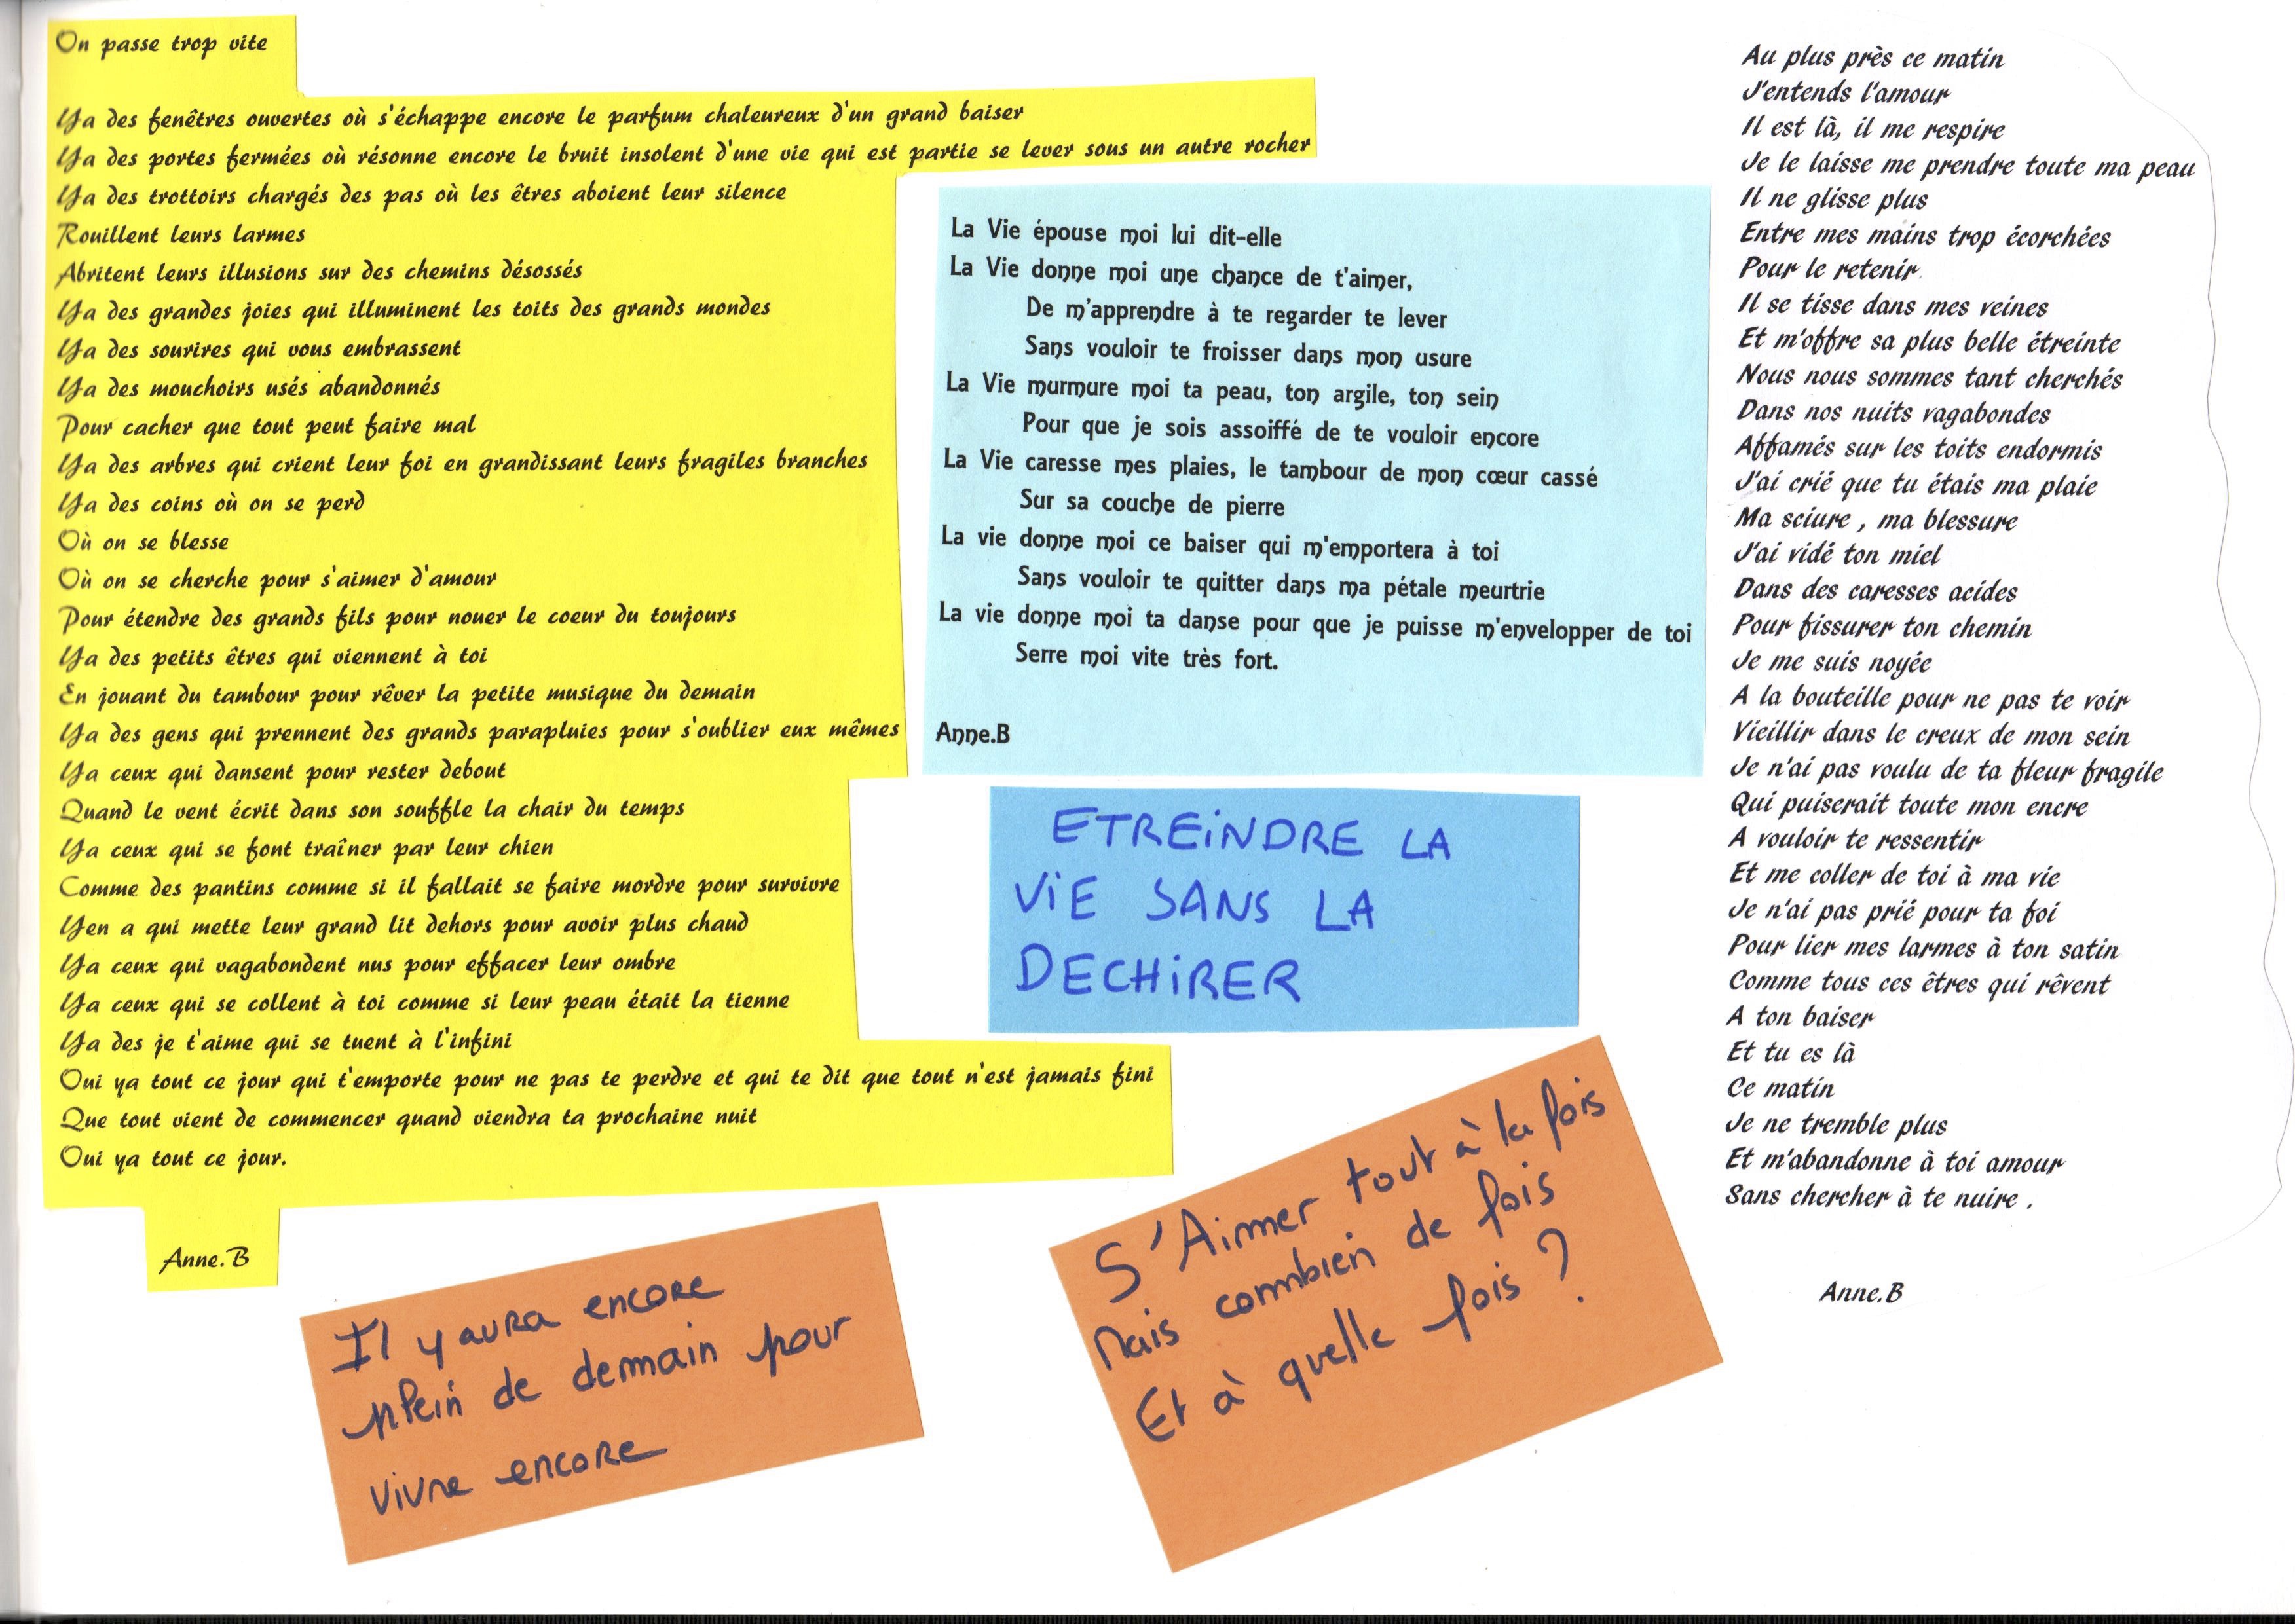 On passe trop vite
Ya des fenêtres ouvertes où s'échappe encore le parfum chaleureux d'un grand baiser
Ya des portes fermées où résonne encore le bruit insolent d'une vie qui est partie se lever sous un autre rocher
Ya des trottoirs chargés des pas où les êtres aboient leur silence
Rouillent leurs larmes
Abritent leurs illusions sur des chemins désossés
Ya des grandes joies qui illuminent les toits des grands mondes
Ya des sourires qui vous embrassent
Ya des mouchoirs usés abandonnés
Pour cacher que tout peut faire mal
Ya des arbres qui crient leur foi en grandissant leurs fragiles branches
Ya des coins où on se perd
Où on se blesse
Où on se cherche pour s'aimer d'amour
Pour étendre des grands fils pour nouer le coeur du toujours
Ya des petits êtres qui viennent à toi
En jouant du tambour pour rêver la petite musique du demain
Ya des gens qui prennent des grands parapluies pour s'oublier eux mêmes
Ya ceux qui dansent pour rester debout
Quand le vent écrit dans son souffle la chair du temps
Ya ceux qui se font traîner par leur chien
Comme des pantins comme si il fallait se faire mordre pour survivre
Yen a qui mette leur grand lit dehors pour avoir plus chaud
Ya ceux qui vagabondent nus pour effacer leur ombre
Ya ceux qui se collent à toi comme si leur peau était la tienne
Ya des je t'aime qui se tuent à l'infini
Oui ya tout ce jour qui t'emporte pour ne pas te perdre et qui te dit que tout n'est jamais fini
Que tout vient de commencer quand viendra ta prochaine nuit
Oui ya tout ce jour.
Anne.B
La Vie épouse moi lui dit-elle
La Vie donne moi une chance de t'aimer,
De m'apprendre à te regarder te lever
Sans vouloir te froisser dans mon usure
La Vie murmure moi ta peau, ton argile, ton sein
Pour que je sois assoiffé de te vouloir encore
La Vie caresse mes plaies, le tambour de mon cœur cassé
Sur sa couche de pierre
La vie donne moi ce baiser qui m'emportera à toi
Sans vouloir te quitter dans ma pétale meurtrie
La vie donne moi ta danse pour que je puisse m'envelopper de toi
Serre moi vite très fort.
Anne.B
ETREINDRE LA
VIE SANS LA
DECHIRER
Il y aura encore
plein de demain pour
vivre encore
S'Aimer tout à la fois
Mais combien de fois
Et à quelle fois ?
Au plus près ce matin
J'entends l'amour
Il est là, il me respire
Je le laisse me prendre toute ma peau
Il ne glisse plus
Entre mes mains trop écorchées
Pour le retenir.
Il se tisse dans mes veines
Et m'offre sa plus belle étreinte
Nous nous sommes tant cherchés
Dans nos nuits vagabondes
Affamés sur les toits endormis
J'ai crié que tu étais ma plaie
Ma sciure , ma blessure
J'ai vidé ton miel
Dans des caresses acides
Pour fissurer ton chemin
Je me suis noyée
A la bouteille pour ne pas te voir
Vieillir dans le creux de mon sein
Je n'ai pas voulu de ta fleur fragile
Qui puiserait toute mon encre
A vouloir te ressentir
Et me coller de toi à ma vie
Je n'ai pas prié pour ta foi
Pour lier mes larmes à ton satin
Comme tous ces êtres qui rêvent
A ton baiser
Et tu es là
Ce matin
Je ne tremble plus
Et m'abandonne à toi amour
Sans chercher à te nuire .
Anne.B